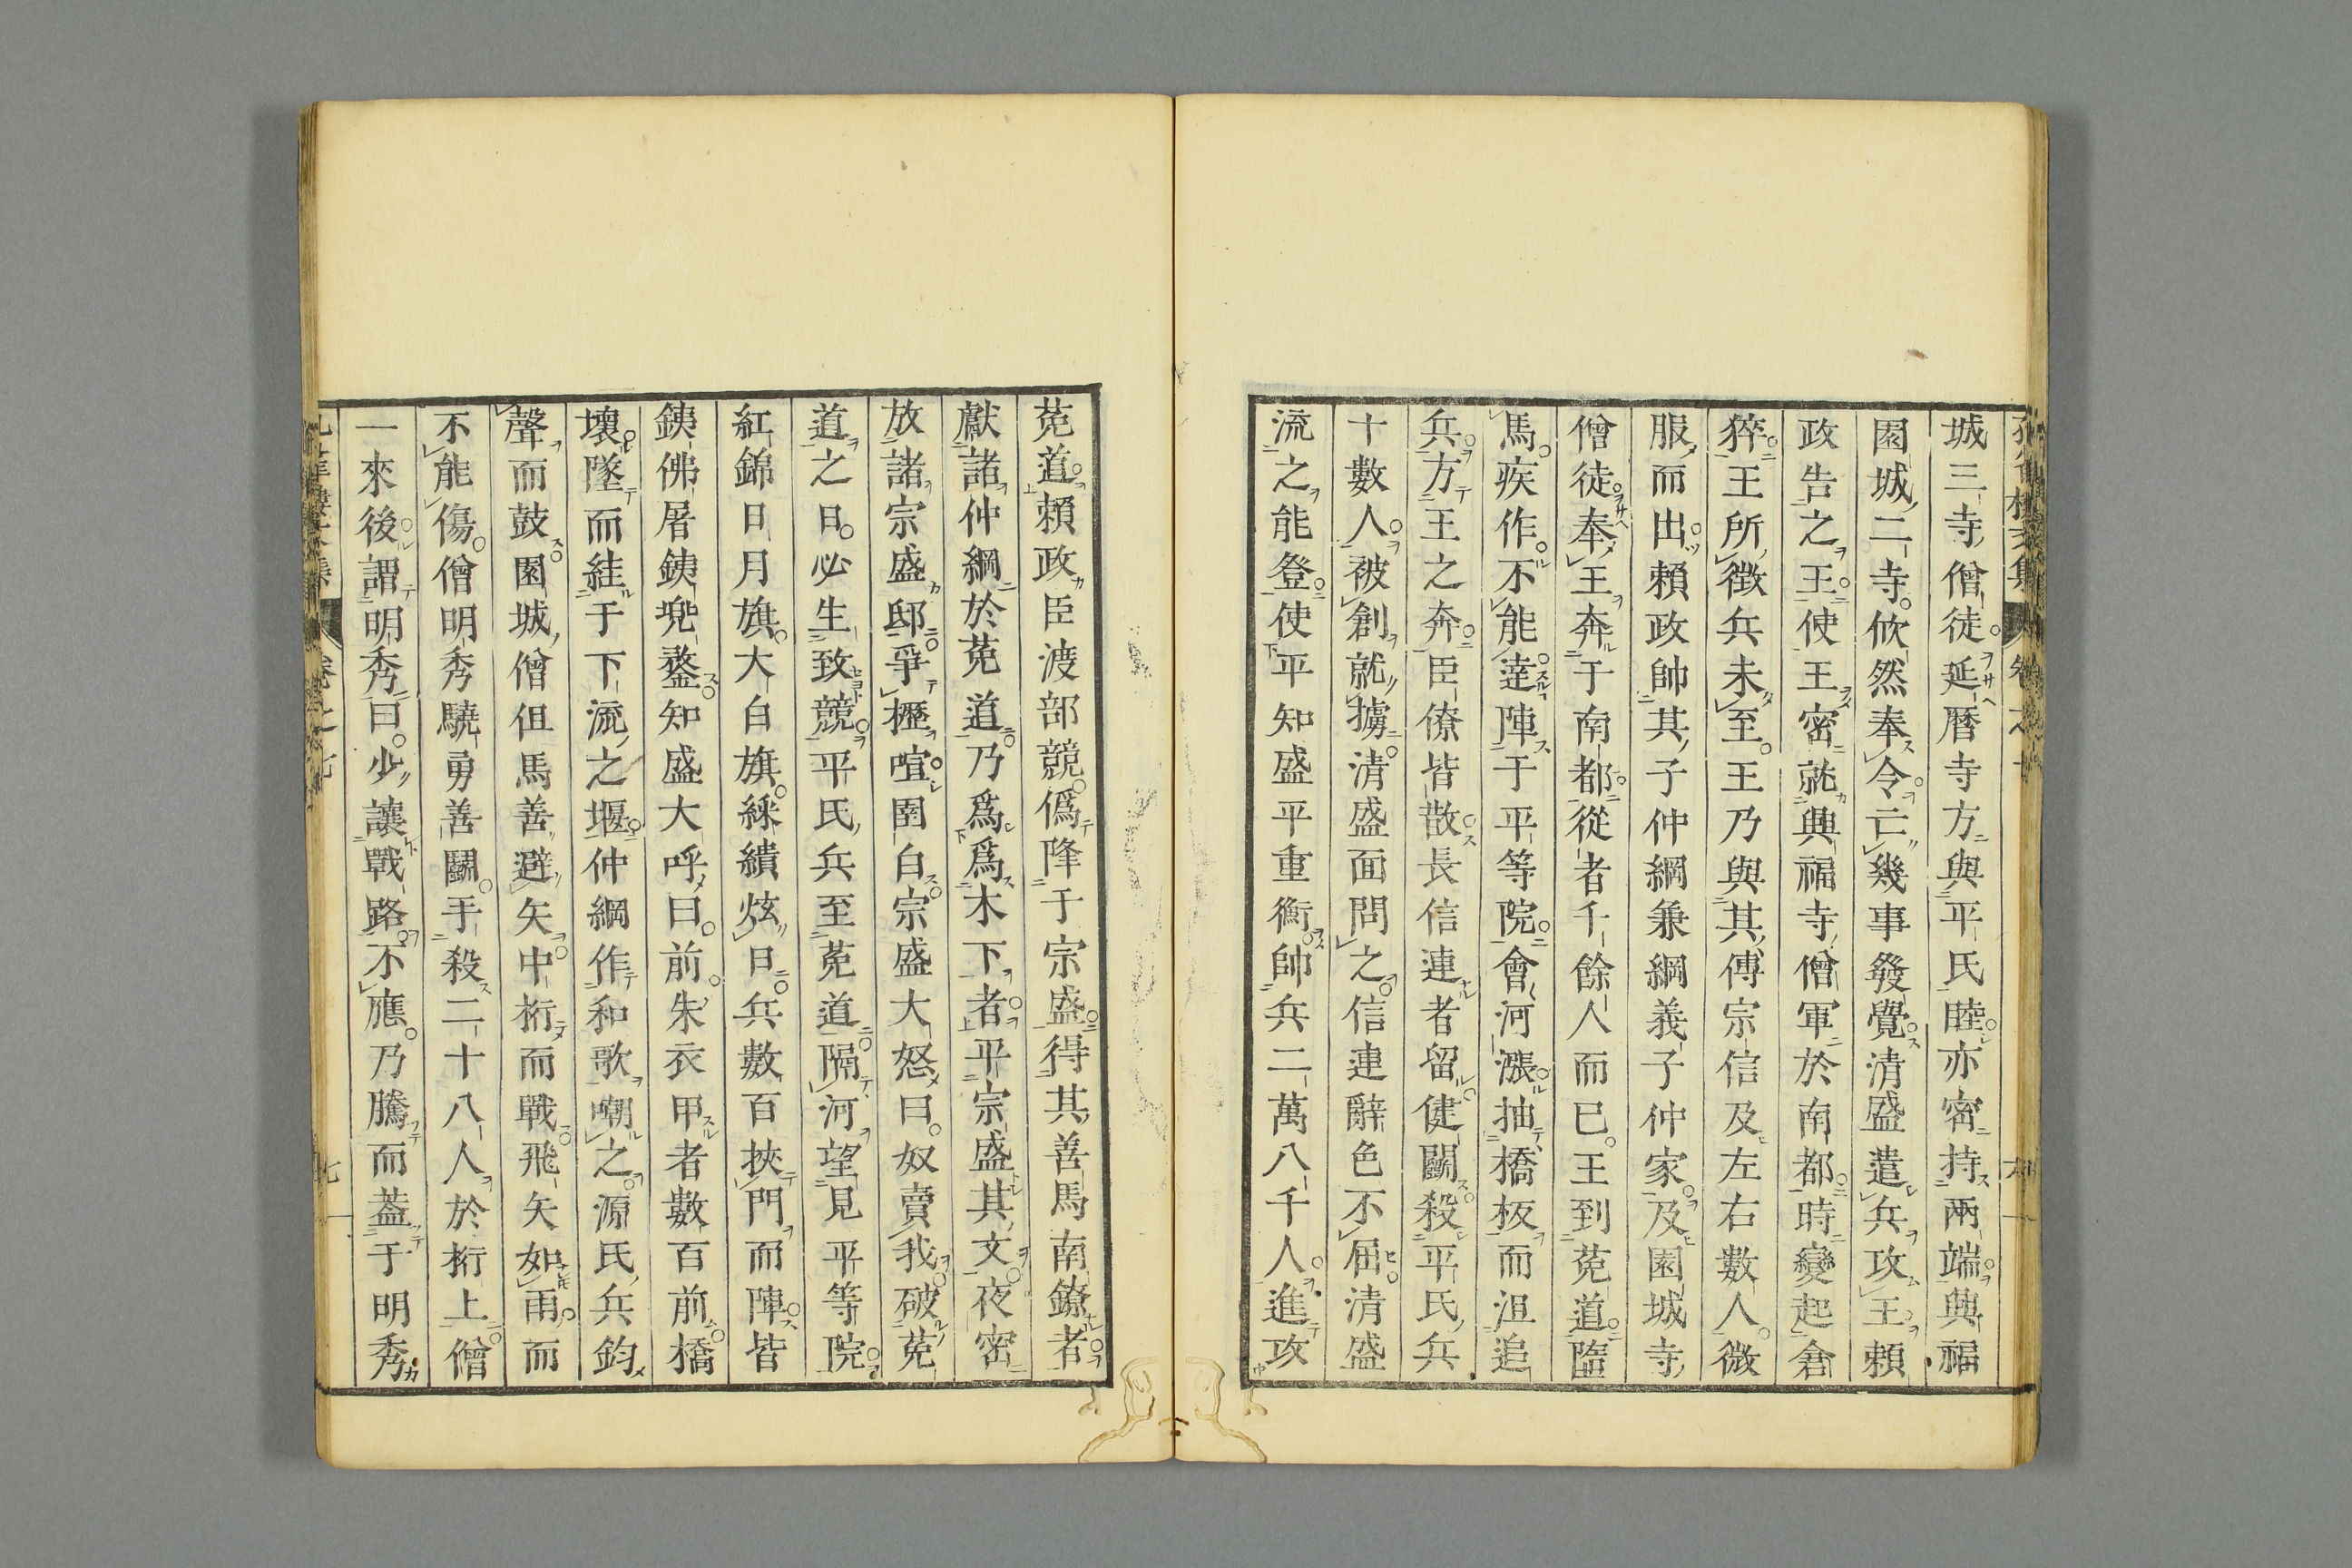 城三寺僧徒延暦寺方與平氏睦亦密持兩端興福
園城二寺欣然奉令亡幾事發覺清盛遣兵攻王賴
政告之王使王密就興福寺僧軍於南都時變起倉
猝王所徵兵未至王乃與其傳宗信及左右數人微
服而出賴政帥其子仲綱兼綱義子仲家及園城寺
僧徒奉王奔于南都從者千餘人而已王到菟道墮
馬疾作不能達陣于平等院會河漲抽橋板而沮追
兵方王之奔臣僚皆散長信連者留健鬭殺平氏兵
十數人被創就擄清盛面問之信連辭色不屈清盛
流之能登使平知盛平重衡帥兵二萬八千人進攻
菟道賴政臣渡部競僞降于宗盛得其善馬南鐐者
獻諸仲綱於菟道乃爲爲木下者平宗盛其文夜密
放諸宗盛邸爭櫪喧圉白宗盛大怒曰奴賣我破菟
道之日必生致競平氏兵至菟道隔河望見平等院
紅錦日月旗大白旗綵繢炫日兵數百挾門而陣皆
銕佛屠銕兜鍪知盛大呼曰前朱衣甲者數百前橋
壞墜而絓于下流之堰仲綱作和歌嘲之源氏兵鈞
聲而鼓園城僧但馬善避矢中桁而戰飛矢如雨而
不能傷僧明秀驍勇善鬭手殺二十八人於桁上僧
一來後謂明秀曰少讓戰路不應乃騰而蓋于明秀
卷之七
七